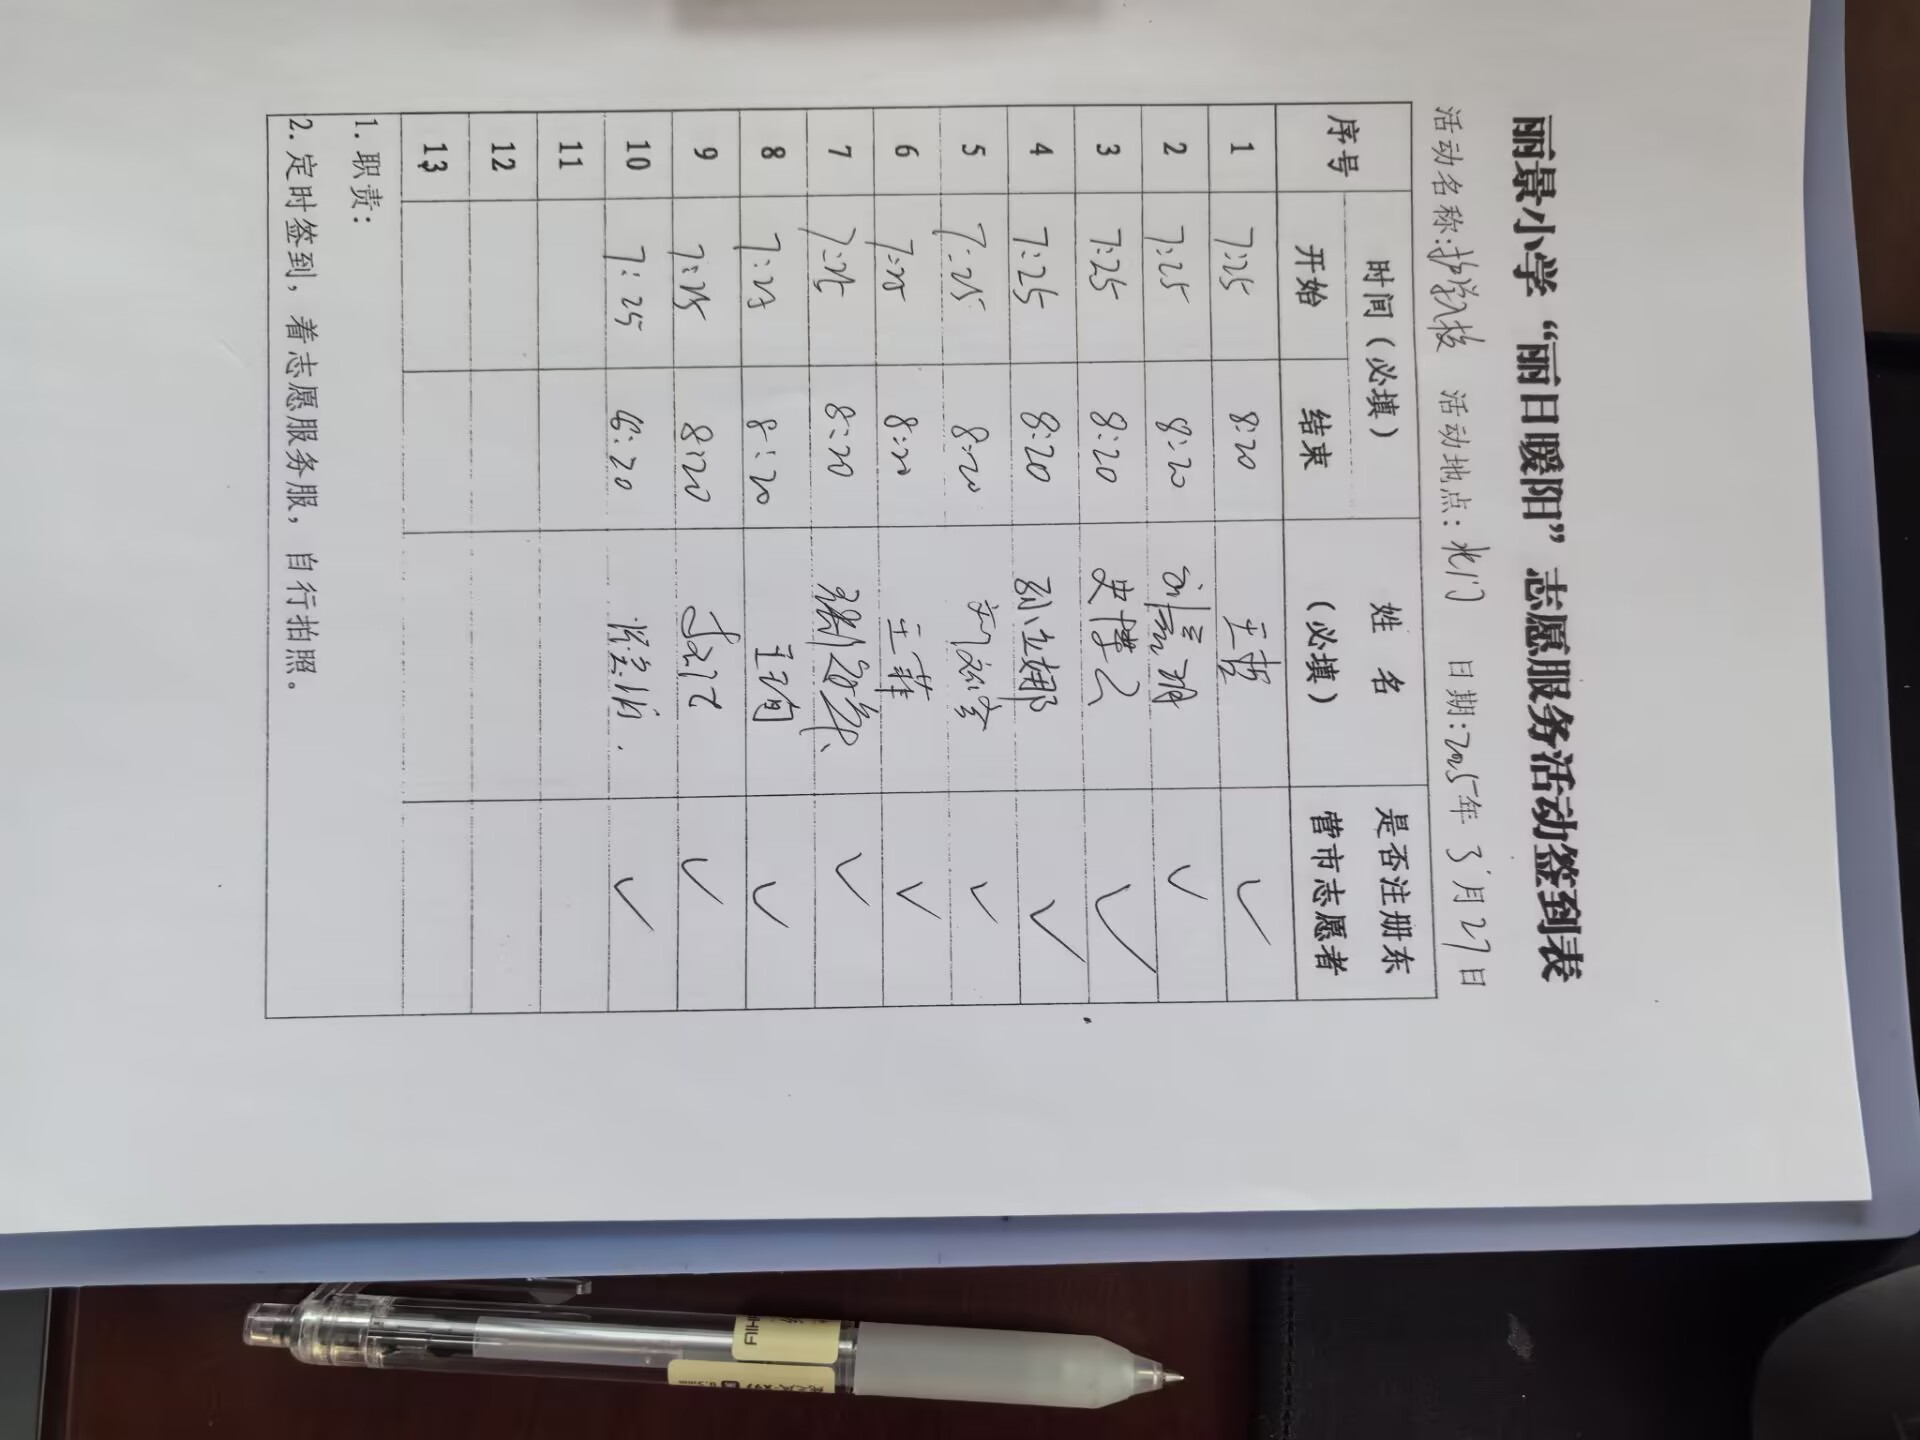 丽景小学“丽日暖阳”志愿服务活动签到表
活动名称:护学入校 活动地点:北门 日期:2025年3月27日
序号 时间(必填) 姓 名(必填) 是否注册东营市志愿者
开始 结束
1 7:25 8:20 王哲 ✓
2 7:25 8:20 ✓
3 7:25 8:20 史博文 ✓
4 7:25 8:20 孙立娜 ✓
5 7:25 8:20 ✓
6 7:25 8:20 王菲 ✓
7 7:25 8:20 ✓
8 7:25 8:20 王珣 ✓
9 7:25 8:20 ✓
10 7:25 8:20 ✓
11
12
13
1.职责:
2.定时签到,着志愿服务服,自行拍照。